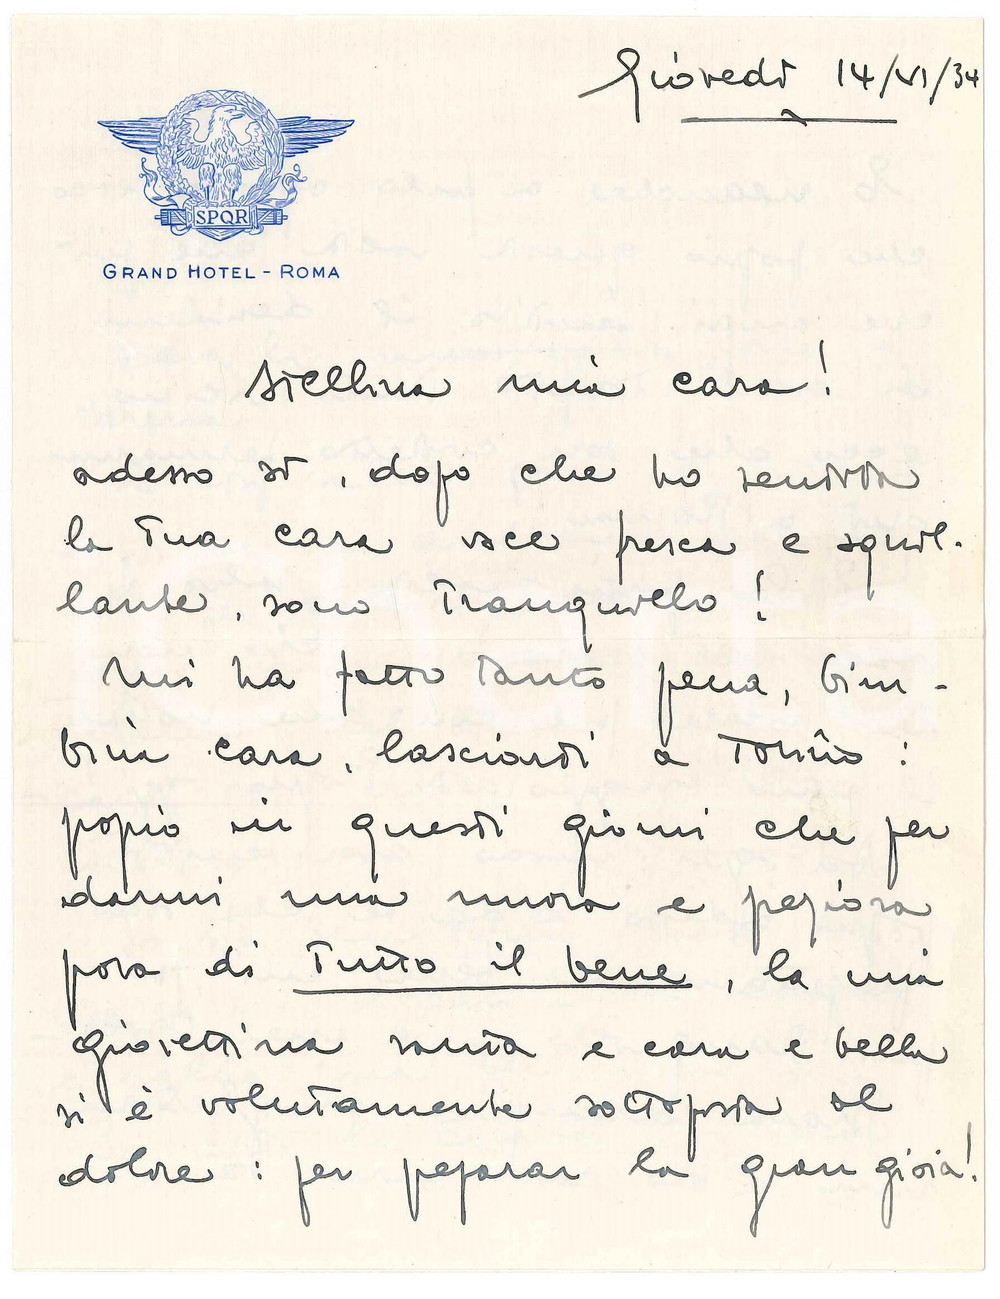 Giovedì 14/VI/34
SPQR
GRAND HOTEL - ROMA
Stellina mia cara!
adesso sì, dopo che ho sentito
la Tua cara voce fresca e squil-
lante, sono tranquillo!
Mi ha fatto tanto pena, bim-
bina cara, lasciarti a Torino:
popio in questi giorni che per
darmi una nuova e peziosa
pova di tutto il bene, la mia
gioiettina santa e cara e bella
si è volutamente sottoposta al
dolore: per peparar la gran gioia!